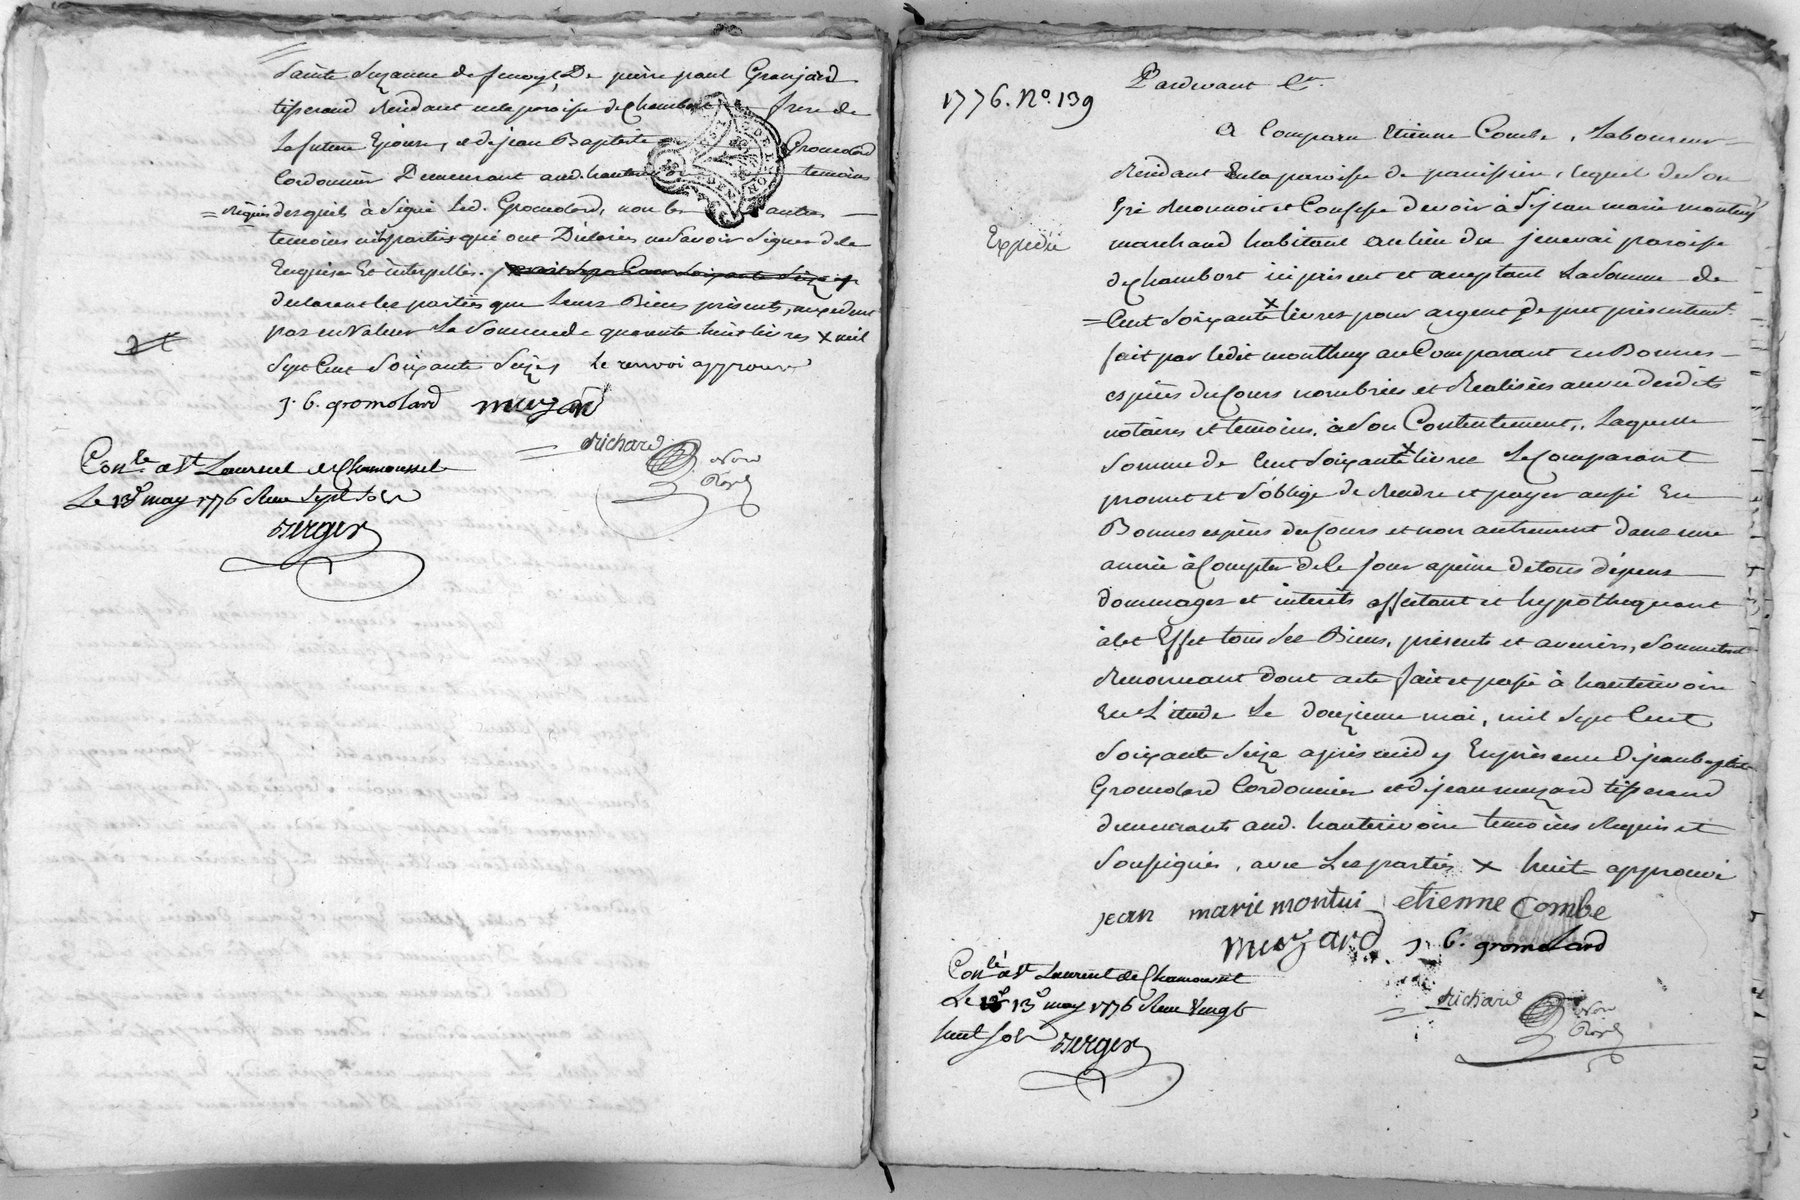 Sainte Suzanne de fenoyl, De pierre paul Granjard
tisserand Residant en la paroisse de Chambost frere de
La future Epouse, et de jean Baptiste Gromolard
Cordonnier Demeurant aud. hauterivoire temoins
= Requis desquels à Signé Led. Gromolard, non les autres
temoins ni les parties qui ont Déclarées ne Savoir Signer de ce
Enquises Et interpellées.
declarent les parties que Leurs Biens présents, n'excedent
pas en valeur La Somme de quarante huit livres x mil
Sept Cent Soixante Seize, le renvoi approuvé
J. b. gromolard muzard
richard
Nore
Royal
Con.le a St Laurent de Chamousset
Le 13e may 1776 Reçu Sept Sols
Berger
1776. No. 139
Pardevant &c.
Expedié
A Comparu Etienne Combe, Laboureur
Residant En la paroisse de panissiere, lequel de Son
Gré Reconnoit et Confesse devoir à S. jean marie monthuy
marchand habitant au lieu du jenevai paroisse
de Chambost ici présent et acceptant La Somme de
= Cent Soixante x livres pour argent de pret présentemt.
fait par ledit monthuy au Comparant en Bonnes
espèces du Cours nombrées et Realisées au vu desdits
notaires et temoins, à Son Contentement,, Laquelle
Somme de Cent Soixante x livres Le Comparant
promet et S'oblige de Rendre et payer aussi En
Bonnes espèces du Cours et non autrement dans une
année à Compter de Ce jour a peine de tous dépens
dommages et interêts affectant et hypothequant
à Cet Effet tous Ses Biens, présents et avenirs, Soumettant
Renonceant dont acte fait et passé à hauterivoire
En L'étude Le douzieme mai, mil Sept Cent
Soixante Seize après midy En présence de jean baptiste
Gromolard Cordonnier et de jean muzard tisserand
demeurants aud. hauterivoire temoins Requis et
Soussignés, avec Les parties x huit approuvé
jean marie montui etienne Combe
muzard J. b. gromolard
richard
Nore
Royal
Con.lé a St Laurent de Chamousset
Le 13e may 1776 Reçu Vingt
huit Sols Berger